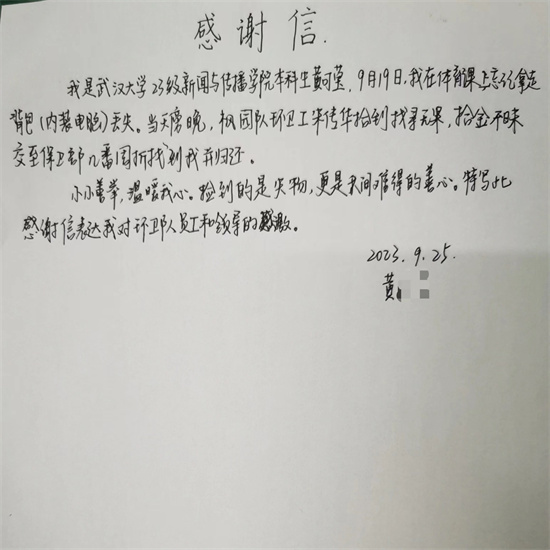 感谢信.
我是武汉大学23级新闻与传播学院本科生黄可莹，9月19日，我在体育课上忘记拿走
背包(内装电脑)丢失。当天傍晚，校园队环卫工宋传华拾到找寻无果，拾金不昧
交至保卫部几番周折找到我并归还。
小小善举，温暖我心。捡到的是失物，更是人间难得的善心。特写此
感谢信表达我对环卫队员工和领导的感激。
2023.9.25.
黄